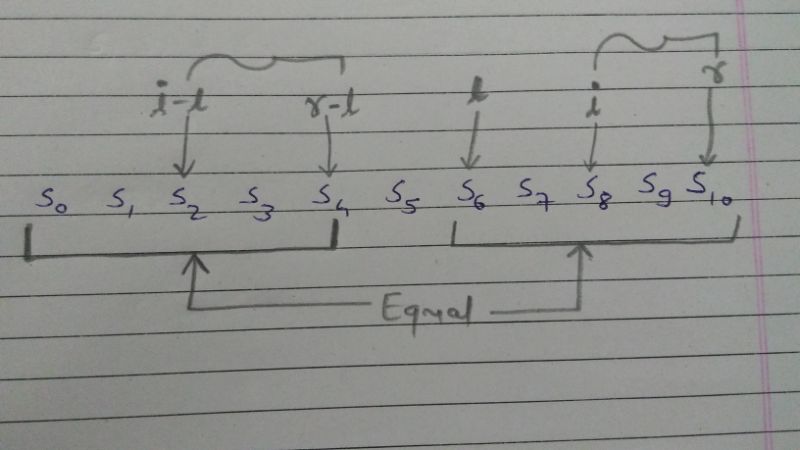 i-l r-l l i r
S₀ S₁ S₂ S₃ S₄ S₅ S₆ S₇ S₈ S₉ S₁₀
Equal